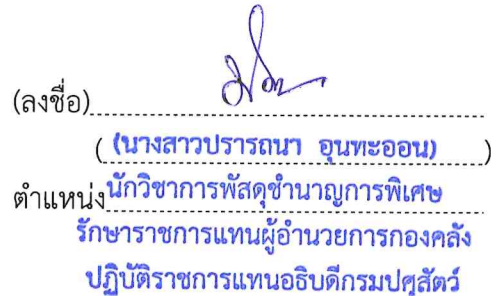 (ลงชื่อ)
( (นางสาวปรารถนา อุนทะออน) )
ตำแหน่ง นักวิชาการพัสดุชำนาญการพิเศษ
รักษาราชการแทนผู้อำนวยการกองคลัง
ปฏิบัติราชการแทนอธิบดีกรมปศุสัตว์